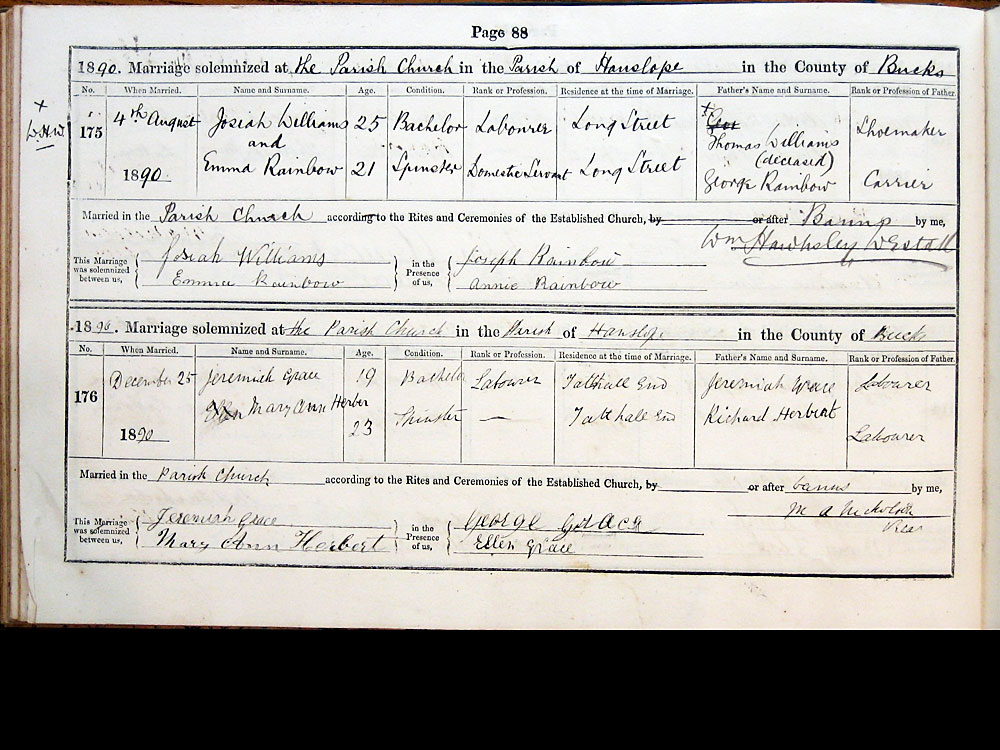 Page 88
1890. Marriage solemnized at the Parish Church in the Parish of Hanslope in the County of Bucks
No. When Married. Name and Surname. Age. Condition. Rank or Profession. Residence at the time of Marriage. Father's Name and Surname. Rank or Profession of Father.
+
W.H.W.
175 4th August 1890 Josiah Williams 25 Bachelor Labourer Long Street + Geo Thomas Williams (deceased) Shoemaker
and
Emma Rainbow 21 Spinster Domestic Servant Long Street George Rainbow Carrier
Married in the Parish Church according to the Rites and Ceremonies of the Established Church, by or after Banns by me,
Wm Hawksley Westall
This Marriage was solemnized between us, Josiah Williams in the Presence of us, Joseph Rainbow
Emma Rainbow Annie Rainbow
1890. Marriage solemnized at the Parish Church in the Parish of Hanslope in the County of Bucks
No. When Married. Name and Surname. Age. Condition. Rank or Profession. Residence at the time of Marriage. Father's Name and Surname. Rank or Profession of Father.
176 December 25 1890 Jeremiah Grace 19 Bachelor Labourer Tathall End Jeremiah Grace Labourer
Ellen Mary Ann Herber 23 Spinster — Tathall End Richard Herbert Labourer
Married in the Parish Church according to the Rites and Ceremonies of the Established Church, by or after banns by me,
M A Nicholson
This Marriage was solemnized between us, Jeremiah Grace in the Presence of us, George Grace
Mary Ann Herbert Ellen Grace